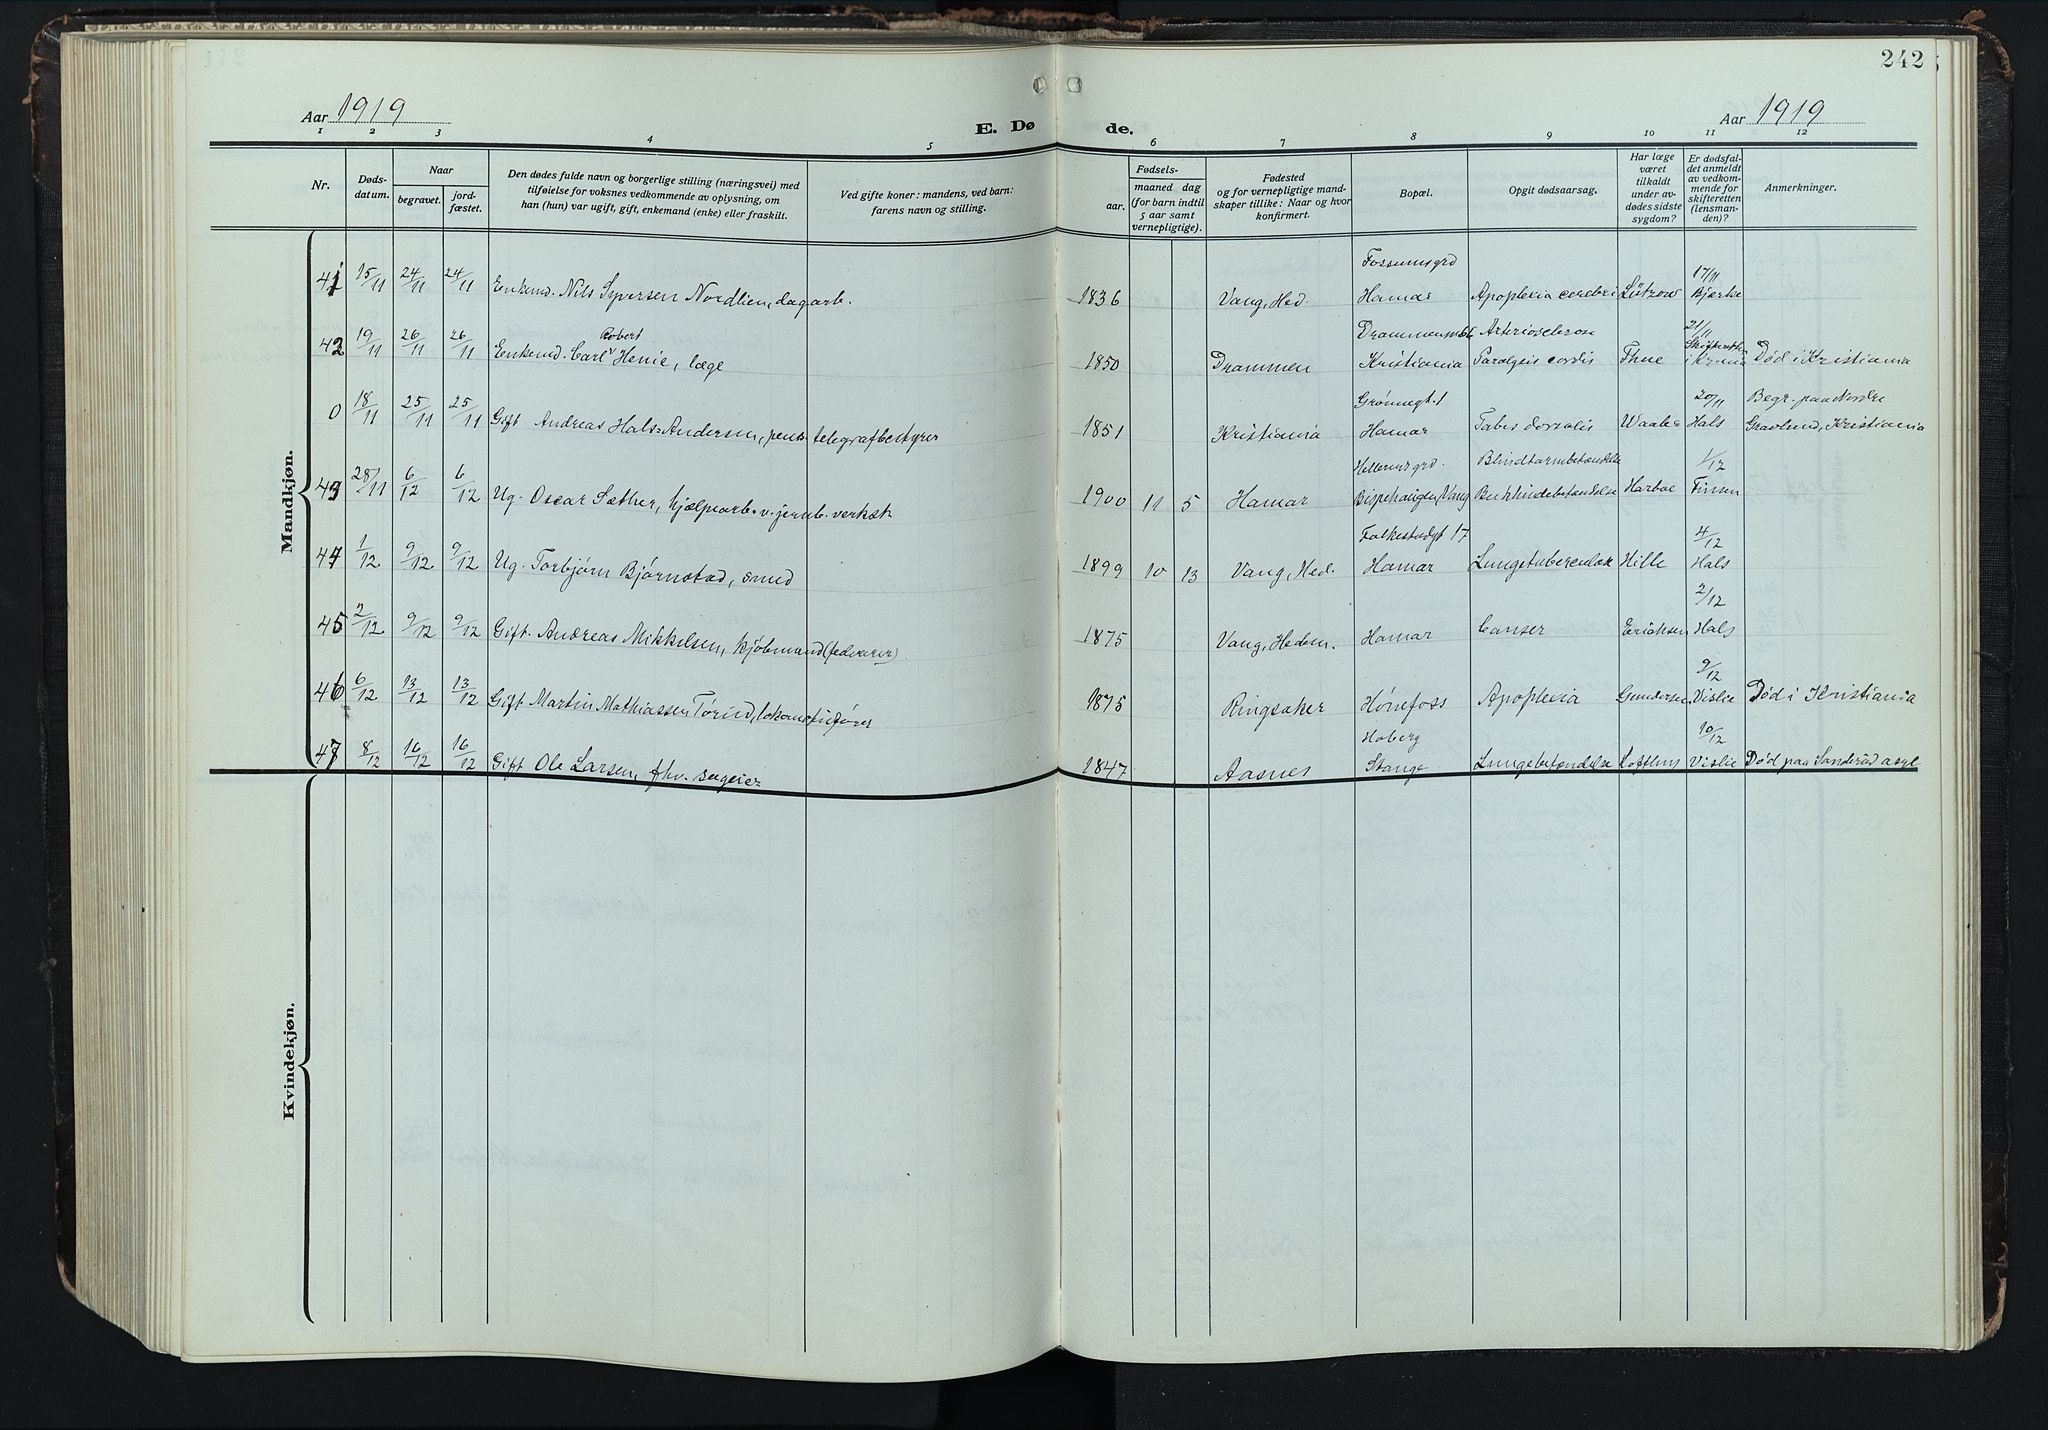 242
Aar 1919
E. Døde.
Aar 1919
1 2 3 4 5 6 7 8 9 10 11 12
Nr.
Døds-
datum.
Naar
begravet.
jord-
fæstet.
Den dødes fulde navn og borgerlige stilling (næringsvei) med
tilføielse for voksnes vedkommende av oplysning, om
han (hun) var ugift, gift, enkemand (enke) eller fraskilt.
Ved gifte koner: mandens, ved barn:
farens navn og stilling.
Fødsels-
aar.
maaned dag
(for barn indtil
5 aar samt
vernepligtige).
Fødested
og for vernepligtige mand-
skaper tillike: Naar og hvor
konfirmert.
Bopæl.
Opgit dødsaarsag.
Har læge
været
tilkaldt
under av-
dødes sidste
sygdom?
Er dødsfal-
det anmeldt
av vedkom-
mende for
skifteretten
(lensman-
den)?
Anmerkninger.
Mandkjøn.
Fossumsgrd 17/11
41 15/11 24/11 24/11 Enkem. Nils Syversen Nordlien, dagarb. 1836 Vang, Hed. Hamar Apoplexia cerebri Lützow Bjerke
Robert Drammensvei Arteriosclerose 21/11
42 19/11 26/11 26/11 Enkemd. Carl Henie, læge 1850 Drammen Kristiania Paralysis cordis Thue Skifteretten i Kr.nia Død i Kristiania
Grønnegt. 1 20/11 Begr. paa Nordre
0 18/11 25/11 25/11 Gift Andreas Hals-Andersen, pens. telegrafbestyrer 1851 Kristiania Hamar Tabes dorsalis Waaler Hals Gravlund, Kristiania
Hellerusgrd. Blindtarmbetændelse 1/12
43 28/11 6/12 6/12 Ug. Oscar Sæther, hjælpearb. v. jernb. verkst. 1900 11 5 Hamar Bispehaugen, Vang Bukhindebetændelse Harboe Finsen
Falkestadgt 17 4/12
44 1/12 9/12 9/12 Ug. Torbjørn Bjørnstad, smed 1899 10 13 Vang, Hed. Hamar Lungetuberculose Hille Hals
2/12
45 2/12 9/12 9/12 Gift. Andreas Mikkelsen, kjøbmand (fedevarer) 1875 Vang, Hedem. Hamar Canser Erichsen Hals
9/12
46 6/12 13/12 13/12 Gift Martin Mathiassen Tørud, lokomotivfører 1875 Ringsaker Hønefoss Apoplexia Gundersen Vislie Død i Kristiania
Hoberg 10/12
47 8/12 16/12 16/12 Gift Ole Larsen, fhv. sageier 1847 Aasnes Stange Lungebetændelse Lofthus Vislie Død paa Sanderud asyl
Kvindekjøn.